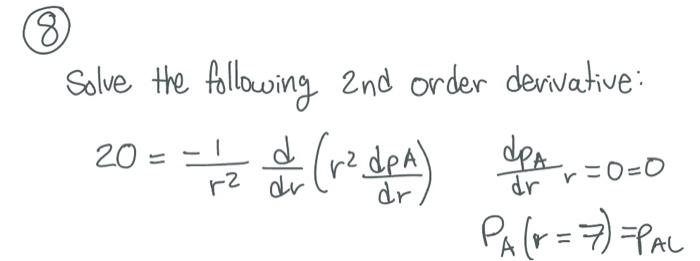 8
Solve the following 2nd order derivative:
20 = -1/r² d/dr (r² dpA/dr) dpA/dr r=0=0
PA(r=7)=PAL